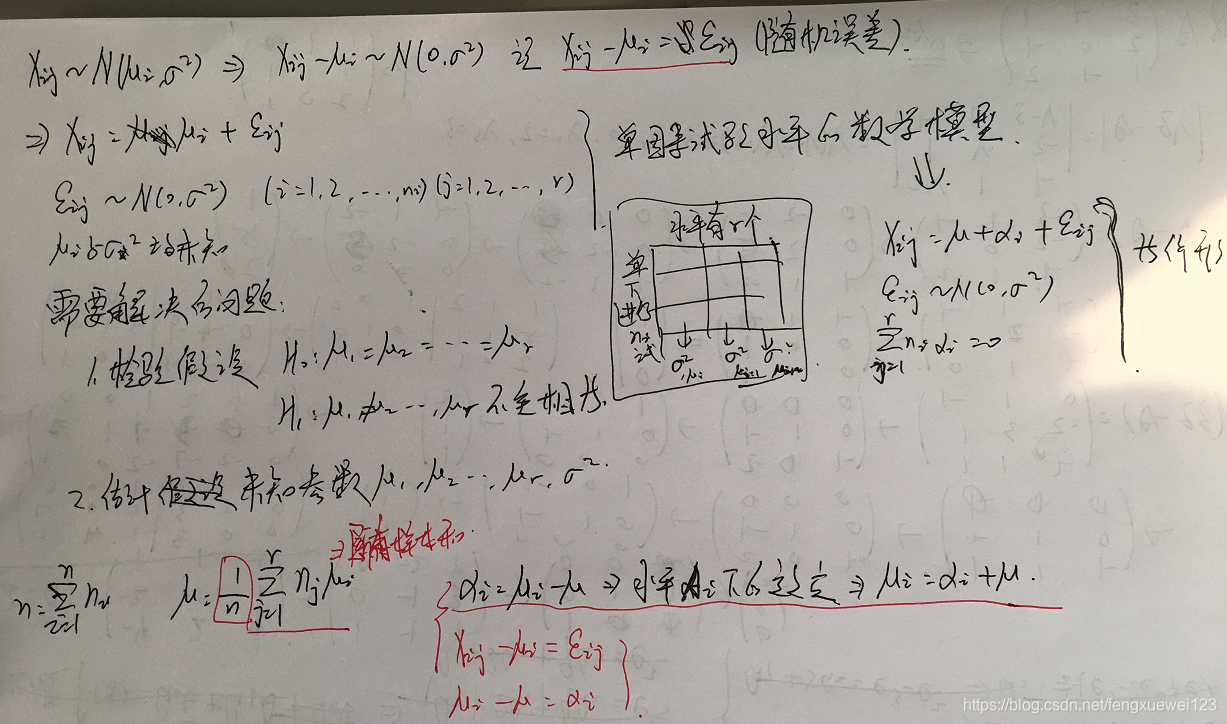 X_{ij} ~ N(μ_i, σ²) ⇒ X_{ij} - μ_i ~ N(0, σ²) 记 X_{ij} - μ_i = ε_{ij} (随机误差).
⇒ X_{ij} = μ_i + ε_{ij}
ε_{ij} ~ N(0, σ²) (i=1,2,⋯,n_i) (j=1,2,⋯,r)
μ_i 与 σ² 均未知
单因素试验水平的数学模型.
⇓
水平有r个
单
下
进行
n_i
试
σ², μ_i
σ²
σ²
X_{ij} = μ + α_i + ε_{ij}
ε_{ij} ~ N(0, σ²)
∑_{j=1}^{r} n_i α_i = 0
等价形
需要解决的问题:
1. 检验假设 H_0: μ_1 = μ_2 = ⋯ = μ_r
H_1: μ_1, μ_2 ⋯, μ_r 不全相等.
2. 估计 未知参数 μ_1, μ_2 ⋯, μ_r, σ².
n = ∑_{i=1}^{n} n_i
μ = 1/n ∑_{j=1}^{r} n_j μ_i
⇒ 样本形
α_i = μ_i - μ ⇒ 水平A_i下的效应 ⇒ μ_i = α_i + μ.
X_{ij} - μ_i = ε_{ij}
μ_i - μ = α_i
https://blog.csdn.net/fengxuewei123